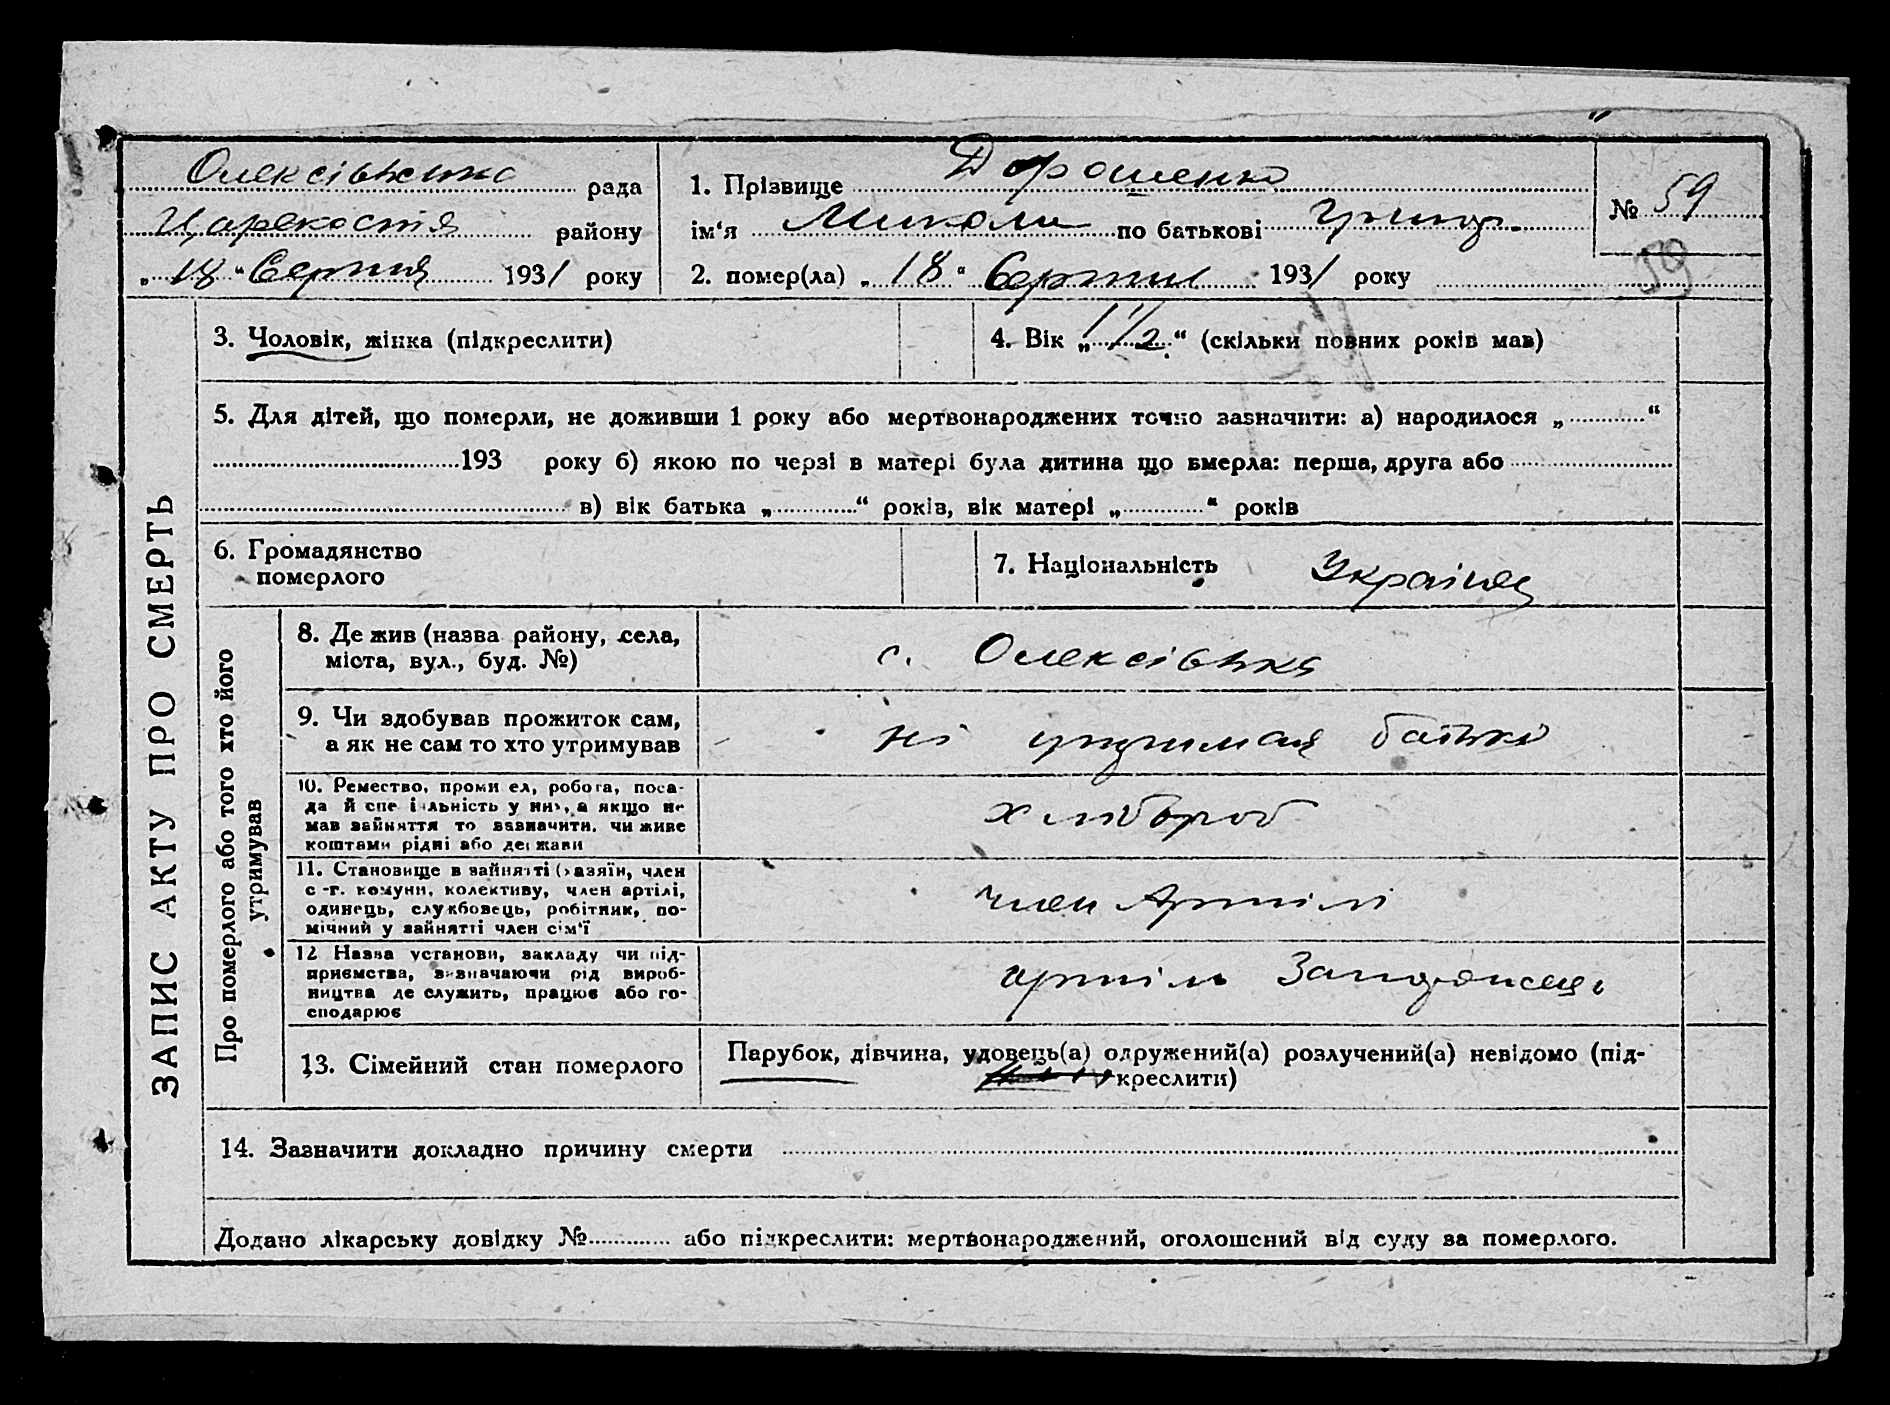 Олексівська рада
району
„ 18 “ Серпня 1931 року
1. Прізвище Дорошенко
ім‘я Микола по батькові Григор.
2. помер(ла) „ 18 “ Серпня 1931 року
№ 59
59
ЗАПИС АКТУ ПРО СМЕРТЬ
3. Чоловік, жінка (підкреслити)
4. Вік „ 1 1/2 “ (скільки повних років мав)
5. Для дітей, що померли, не доживши 1 року або мертвонароджених точно зазначити: а) народилося „ “
193 року б) якою по черзі в матері була дитина що вмерла: перша, друга або
в) вік батька „ “ років, вік матері „ “ років
6. Громадянство
померлого
7. Національність Українец
Про померлого або того хто його
утримував
8. Де жив (назва району, села,
міста, вул., буд. №)
с. Олексівка
9. Чи здобував прожиток сам,
а як не сам то хто утримував
ні батько
10. Ремество, проми ел, робота, поса-
да й спе і льність у них, а якщо не
мав зайняття то зазначити, чи живе
коштами рідні або держави
хлібороб
11. Становище в зайнятті (хазяїн, член
с-г. комуни, колективу, член артілі,
одинець, службовець, робітник, по-
мічний у зайнятті член сім‘ї
член Артілі
12 Назва установи, закладу чи під-
приємства, визначаючи рід вироб-
ництва де служить, працює або го-
сподарює
артіль
13. Сімейний стан померлого
Парубок, дівчина, удовець(а) одружений(а) розлучений(а) невідомо (під-
креслити)
14. Зазначити докладно причину смерти
Додано лікарську довідку № або підкреслити: мертвонароджений, оголошений від суду за померлого.